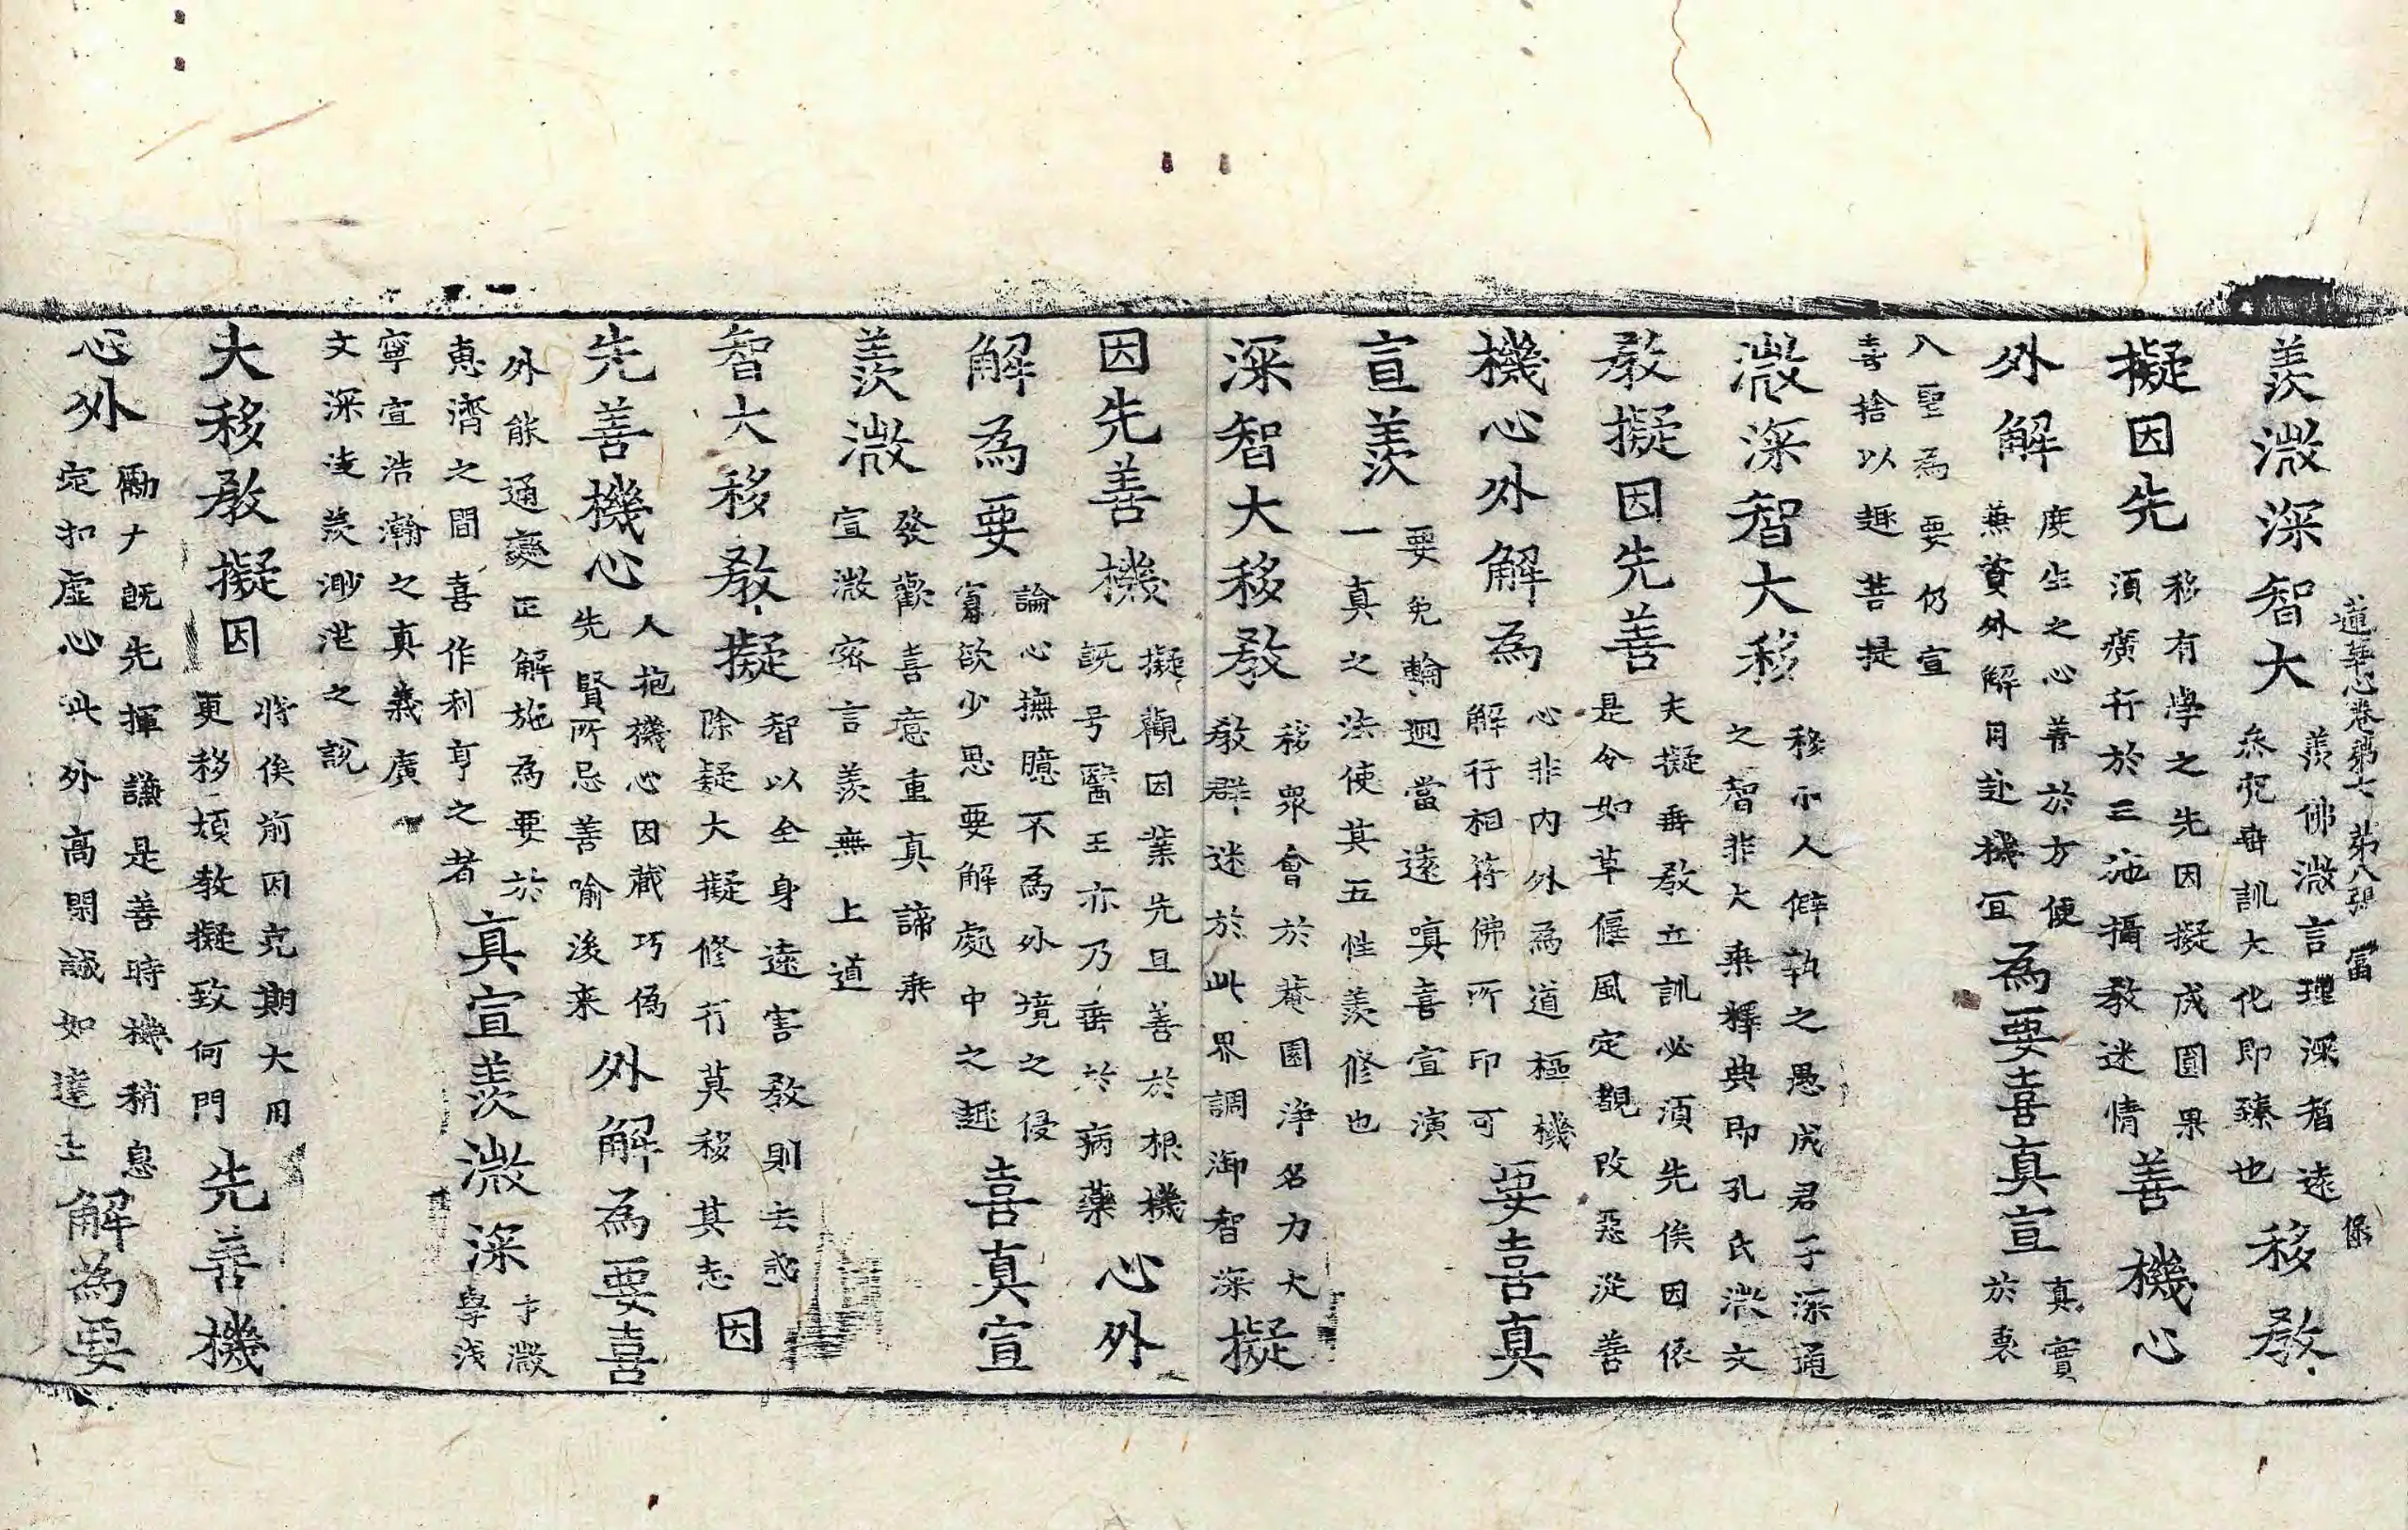 羨㳲深智大 羨佛㳲言理深智遠 叅照垂訓大化即臻也 移教
蓮華心卷第七 第八張 富 保
擬因先 移有學之先因擬成圓果 須廣行於三㳽攝教迷情 善機心
外解 庶生之心善於方便 兼資外解日赴機宜 為要喜真宣 真實於裏
入聖為要仍宣
喜捨以趣菩提
㳲深智大移 移小人僻執之愚成君子深通 之智非大乘釋典即孔氏㳲文
教擬因先善 夫擬垂教立訓必須先俟因依 是令如草偃風定覩改惡從善
機心外解為 心非內外為道樞機 解行相符佛所印可 要喜真
宣羨 要免輪迴當遠嗔喜宣演 一真之法使其五性羨修也
深智大移教 移衆會於菴園淨名力大 教群迷於此界調御智深 擬
因先善機 擬觀因業先且善於根機 既号醫王亦乃垂於病藥 心外
解為要 論心撫臆不為外境之侵 寡欲少思要解處中之趣 喜真宣
羨㳲 發歡喜意重真諦乘 宣㳲密言羨無上道
智大移教擬 智以全身遠害教則去惑 除疑大擬修行莫移其志 因
先善機心 人抱機心因蔵巧偽 先賢所忌善喻後来 外解為要喜
外能通變正解施為要於
惠濟之間喜作利亨之者 真宣羨㳲深 予㳲學淺
寧宣浩瀚之真義廣
文深淩羨渺茫之說
大移教擬因 將俟前因克期大用 更移煩教擬致何門 先善機
心外 勵才既先揮謙是善時機稍息 定扣虛心此外高閑誠如達士 解為要